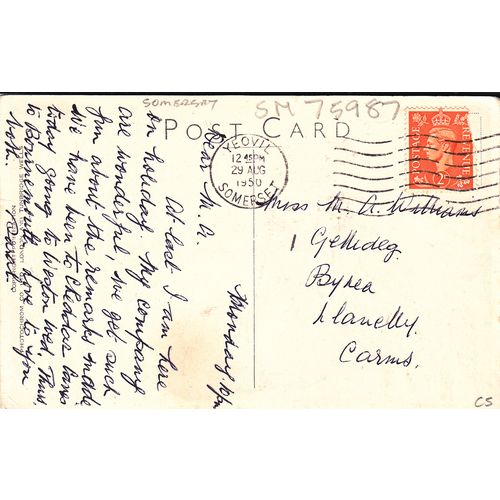 SOMERSET
SM 75987
POST CARD
YEOVIL
12 45PM
29 AUG
1950
SOMERSET
POSTAGE
REVENUE
2D
Miss M. A. Williams
1 Gethideg
Bynea
Llanelly.
Carms.
CS
Monday
Dear M. A.
At last I am here
on holiday. My company
are wonderful, we get such
fun about the remarks made
We have been to Cheddar Caves
today going to Weston Wed. Thurs.
to Bournemouth. Love to you
both.